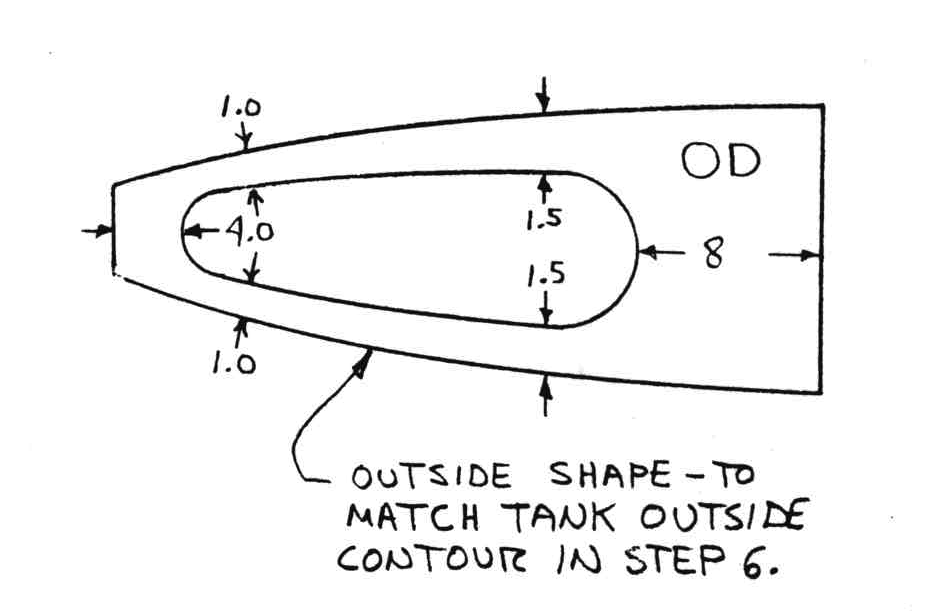 1.0
OD
4.0
1.5
8
1.5
1.0
OUTSIDE SHAPE - TO
MATCH TANK OUTSIDE
CONTOUR IN STEP 6.